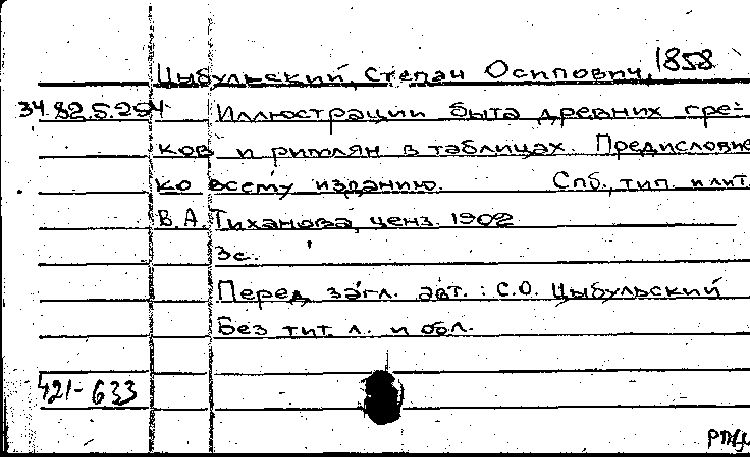 Цыбульский, Степан Осипович, 1858
34.82.5.294 Иллюстрации быта древних гре-
ков и римлян в таблицах. Предисловие
ко всему изданию. Спб., тип. и лит.
В.А. Тиханова, ценз. 1902
3с.
Перед загл. авт.: С.О. Цыбульский
Без тит. л. и обл.
421-633